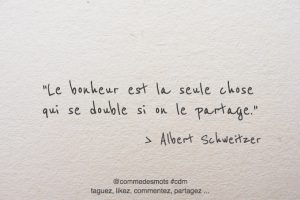 "Le bonheur est la seule chose
qui se double si on le partage."
> Albert Schweitzer
@commedesmots #cdm
taguez, likez, commentez, partagez ...